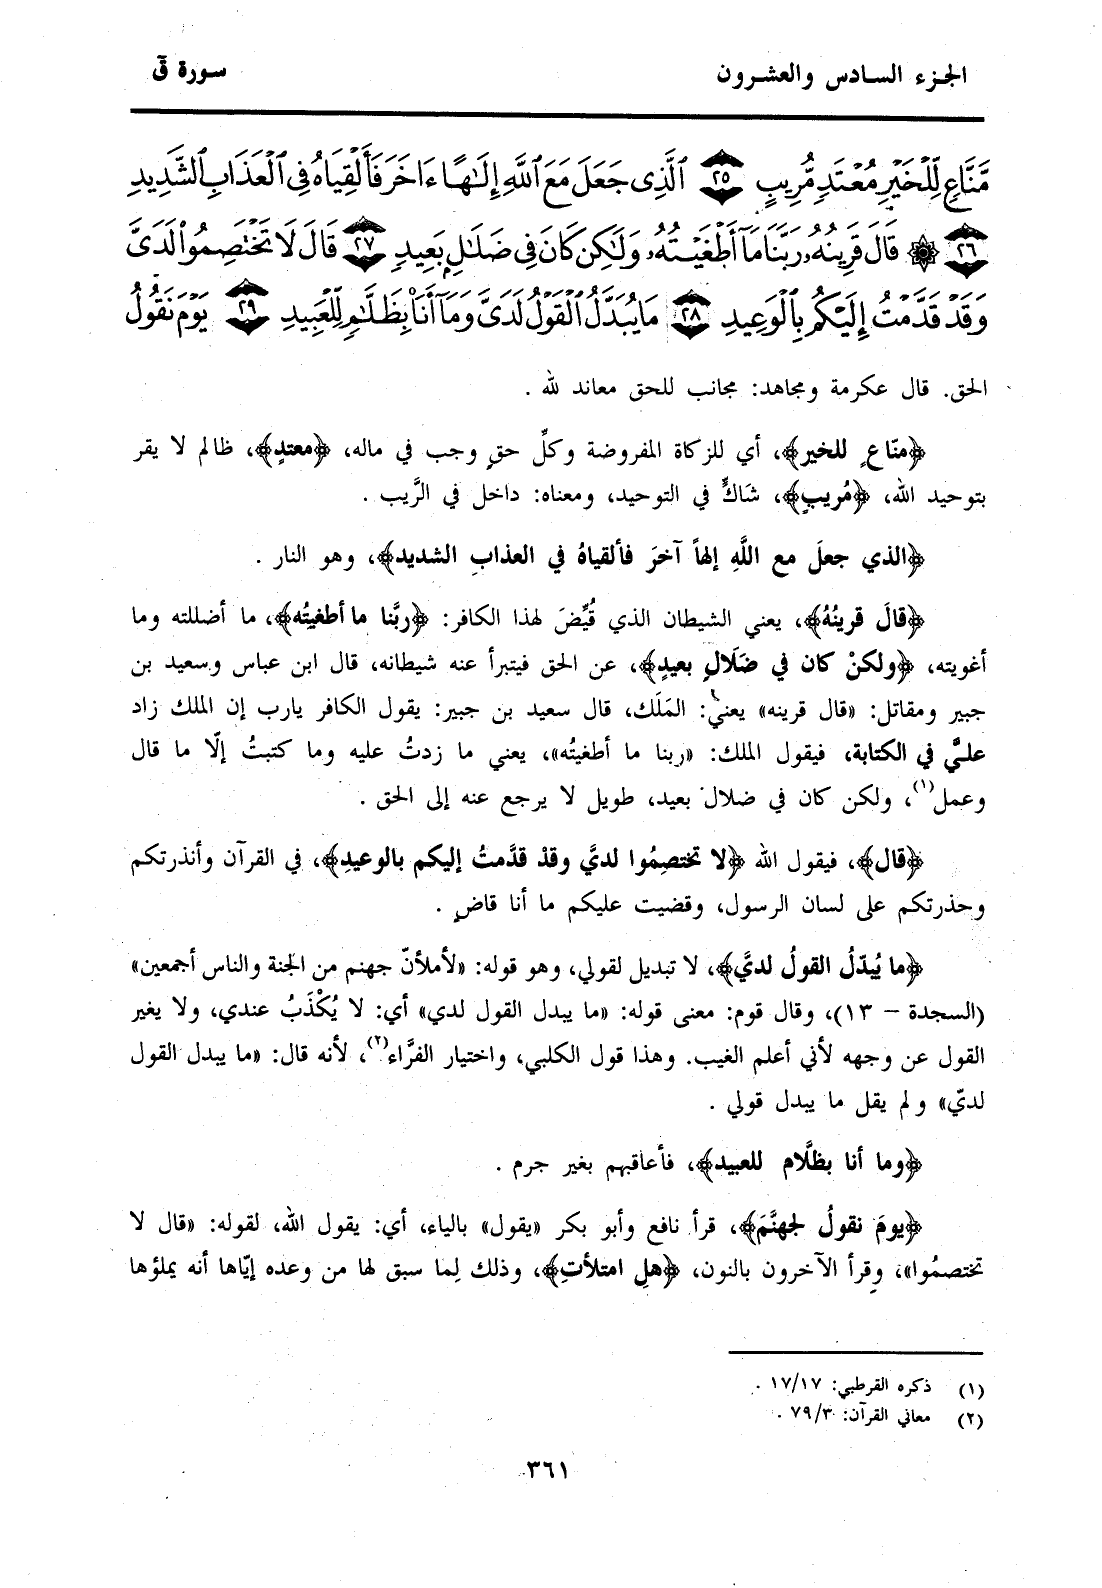 الجزء السادس والعشرون
سورة قٓ
مَّنَّاعٍ لِّلْخَيْرِ مُعْتَدٍ مُّرِيبٍ ٢٥ ٱلَّذِى جَعَلَ مَعَ ٱللَّهِ إِلَٰهًا ءَاخَرَ فَأَلْقِيَاهُ فِى ٱلْعَذَابِ ٱلشَّدِيدِ
٢٦ ۞ قَالَ قَرِينُهُۥ رَبَّنَا مَآ أَطْغَيْتُهُۥ وَلَٰكِن كَانَ فِى ضَلَٰلٍۭ بَعِيدٍ ٢٧ قَالَ لَا تَخْتَصِمُوا۟ لَدَىَّ
وَقَدْ قَدَّمْتُ إِلَيْكُم بِٱلْوَعِيدِ ٢٨ مَا يُبَدَّلُ ٱلْقَوْلُ لَدَىَّ وَمَآ أَنَا۠ بِظَلَّٰمٍ لِّلْعَبِيدِ ٢٩ يَوْمَ نَقُولُ
الحق. قال عكرمة ومجاهد: مجانب للحق معاند لله .
﴿منّاعٍ للخير﴾، أي للزكاة المفروضة وكلِّ حقٍ وجب في ماله، ﴿معتدٍ﴾، ظالم لا يقر
بتوحيد الله، ﴿مُريبٍ﴾، شَاكٍّ في التوحيد، ومعناه: داخل في الرَّيب .
﴿الذي جعلَ مع اللَّهِ إلهاً آخرَ فألقياهُ في العذابِ الشديد﴾، وهو النار .
﴿قالَ قرينُهُ﴾، يعني الشيطان الذي قُيِّضَ لهذا الكافر: ﴿ربَّنا ما أطغيتُه﴾، ما أضللته وما
أغويته، ﴿ولكنْ كان في ضَلَالٍ بعيدٍ﴾، عن الحق فيتبرأ عنه شيطانه، قال ابن عباس وسعيد بن
جبير ومقاتل: «قال قرينه» يعني: المَلَك، قال سعيد بن جبير: يقول الكافر يارب إن الملك زاد
عليَّ في الكتابة، فيقول الملك: «ربنا ما أطغيتُه»، يعني ما زدتُ عليه وما كتبتُ إلّا ما قال
وعمل(١)، ولكن كان في ضلال بعيد، طويل لا يرجع عنه إلى الحق .
﴿قال﴾، فيقول الله ﴿لا تختصِمُوا لديَّ وقدْ قدَّمتُ إليكم بالوعيدِ﴾، في القرآن وأنذرتكم
وحذرتكم على لسان الرسول، وقضيت عليكم ما أنا قاضٍ .
﴿ما يُبدّلُ القولُ لديَّ﴾، لا تبديل لقولي، وهو قوله: «لأملأنّ جهنم من الجنة والناس أجمعين»
(السجدة – ١٣)، وقال قوم: معنى قوله: «ما يبدل القول لدي» أي: لا يُكْذَبُ عندي، ولا يغير
القول عن وجهه لأني أعلم الغيب. وهذا قول الكلبي، واختيار الفرَّاء(٢)، لأنه قال: «ما يبدل القول
لديّ» ولم يقل ما يبدل قولي .
﴿وما أنا بظلَّام للعبيد﴾، فأعاقبهم بغير جرم .
﴿يومَ نقولُ لجهنَّمَ﴾، قرأ نافع وأبو بكر «يقول» بالياء، أي: يقول الله، لقوله: «قال لا
تختصمُوا»، وقرأ الآخرون بالنون، ﴿هلِ امتلأتِ﴾، وذلك لِما سبق لها من وعده إيّاها أنه يملؤها
(١) ذكره القرطبي: ١٧/١٧ .
(٢) معاني القرآن: ٧٩/٣ .
٣٦١